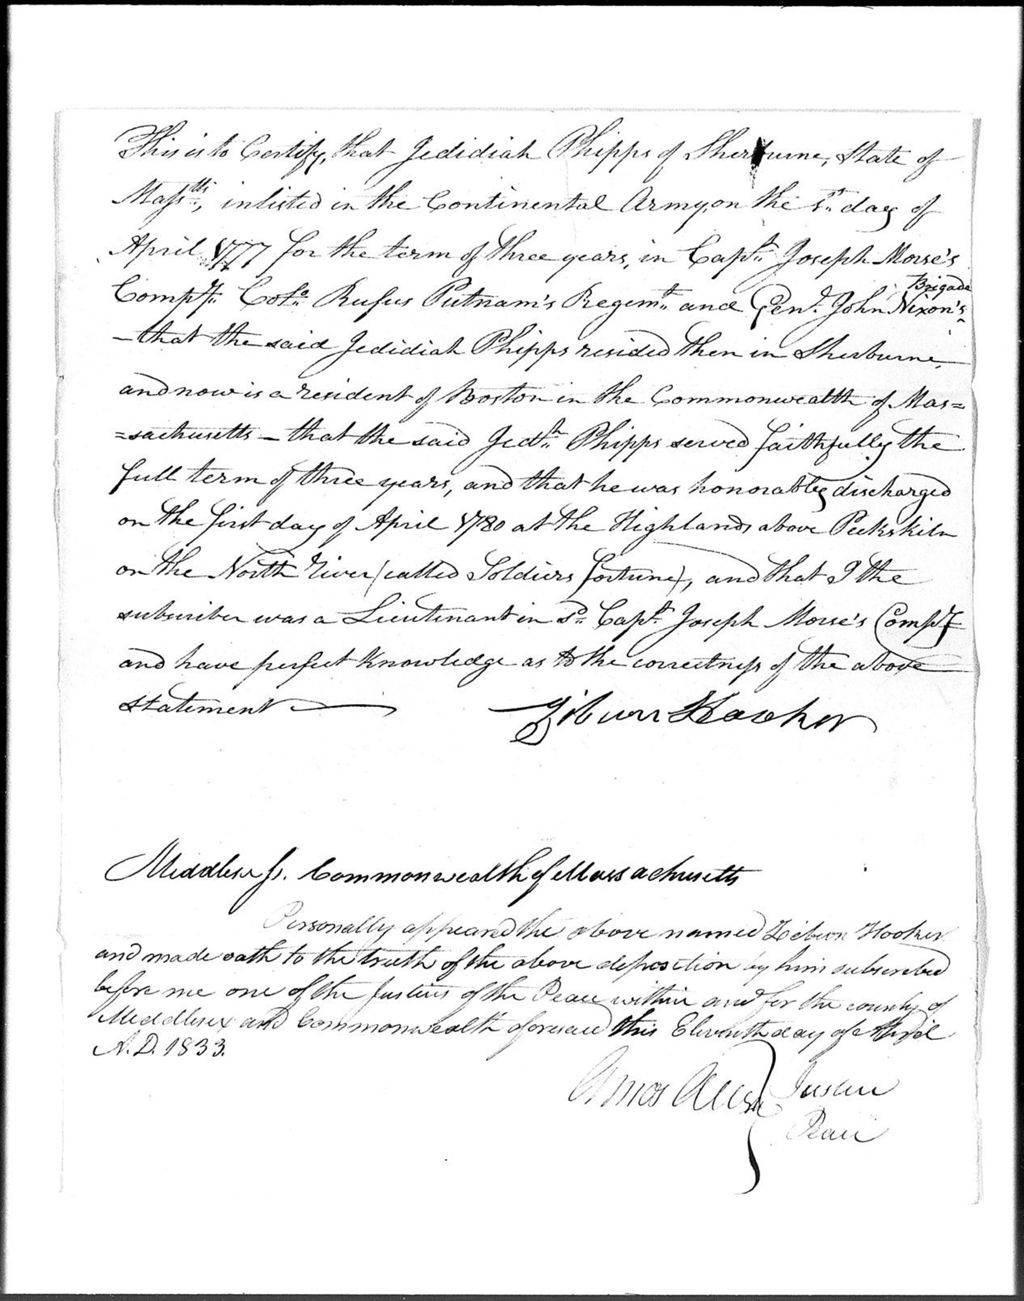 This is to Certify, that Jedidiah Phipps of Sherburne, State of
Masstts, inlisted in the Continental Army, on the 1st day of
April 1777 for the term of three years, in Capt. Joseph Morse's
Compy. Colo. Rufus Putnam's Regimt. and Genl. John Nixon's Brigade
– that the said Jedidiah Phipps resided then in Sherburne,
and now is a resident of Boston in the Commonwealth of Mas=
=sachusetts – that the said Jedh. Phipps served faithfully the
full term of three years, and that he was honorably discharged
on the first day of April 1780 at the Highlands above Peekskiln
on the North River (called Soldiers fortune), and that I the
subscriber was a Lieutenant in sd. Capt. Joseph Morse's Compy
and have perfect knowledge as to the correctness of the above
statement
Zibeon Hooker
Middlesex ss. Commonwealth of Massachusetts
Personally appeared the above named Zibeon Hooker
and made oath to the truth of the above deposition by him subscribed
before me one of the Justices of the Peace within and for the county of
Middlesex and Commonwealth aforesaid this Eleventh day of April
A.D. 1833.
Amos Allen Justice
Peace